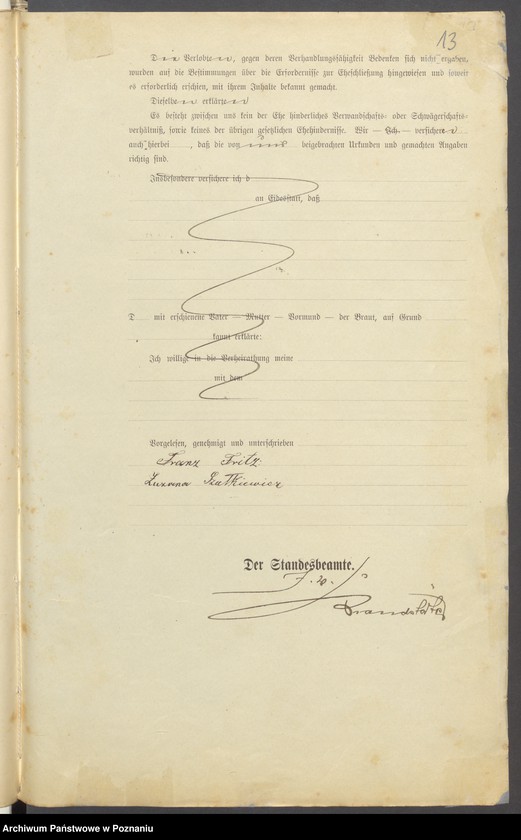 13
Die Verlobten, gegen deren Verhandlungsfähigkeit Bedenken sich nicht ergaben,
wurden auf die Bestimmungen über die Erfordernisse zur Eheschließung hingewiesen und soweit
es erforderlich erschien, mit ihrem Inhalte bekannt gemacht.
Dieselben erklären
Es besteht zwischen uns kein der Ehe hinderliches Verwandschafts- oder Schwägerschafts-
verhältniß, sowie keines der übrigen gesetzlichen Ehehindernisse. Wir — Ich — versichern
auch hierbei, daß die von uns beigebrachten Urkunden und gemachten Angaben
richtig sind.
Insbesondere versichere ich d
an Eidesstatt, daß
D mit erschienene Vater — Mutter — Vormund — der Braut, auf Grund
kannt erklärte:
Ich willige in die Verheirathung meine
mit dem
Vorgelesen, genehmigt und unterschrieben
Franz Fritz
Zuzana
Der Standesbeamte.
Archiwum Państwowe w Poznaniu